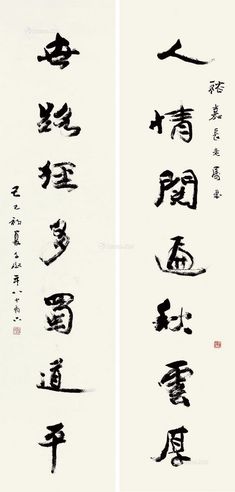 人情閱遍秋雲厚
世路經多蜀道平
己巳初夏
年八十有六